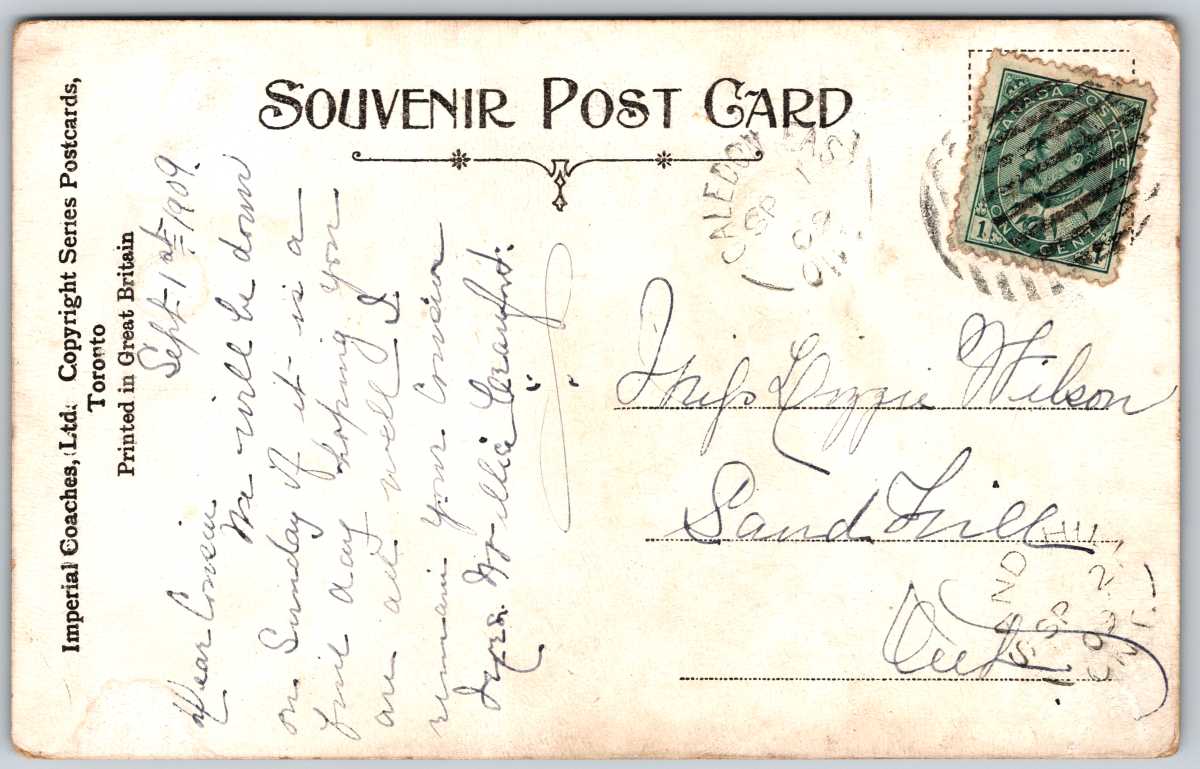 SOUVENIR POST CARD
Imperial Coaches, Ltd. Copyright Series Postcards,
Toronto
Printed in Great Britain
Sept-1st 1909.
Dear Cousin
We will be down
on Sunday if it is a
fine day hoping you
are all well I
remain your Cousin
Willie Crawford.
CALEDON EAST
SP 1
09
ONT
CANADA POSTAGE
ONE CENT
1
Miss Lizzie Wilson
Sand Hill
Ont
SAND HILL
SP 2
09
ONT.